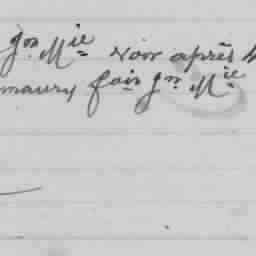 Jn Mie Noir après
maury fair Jn Mie